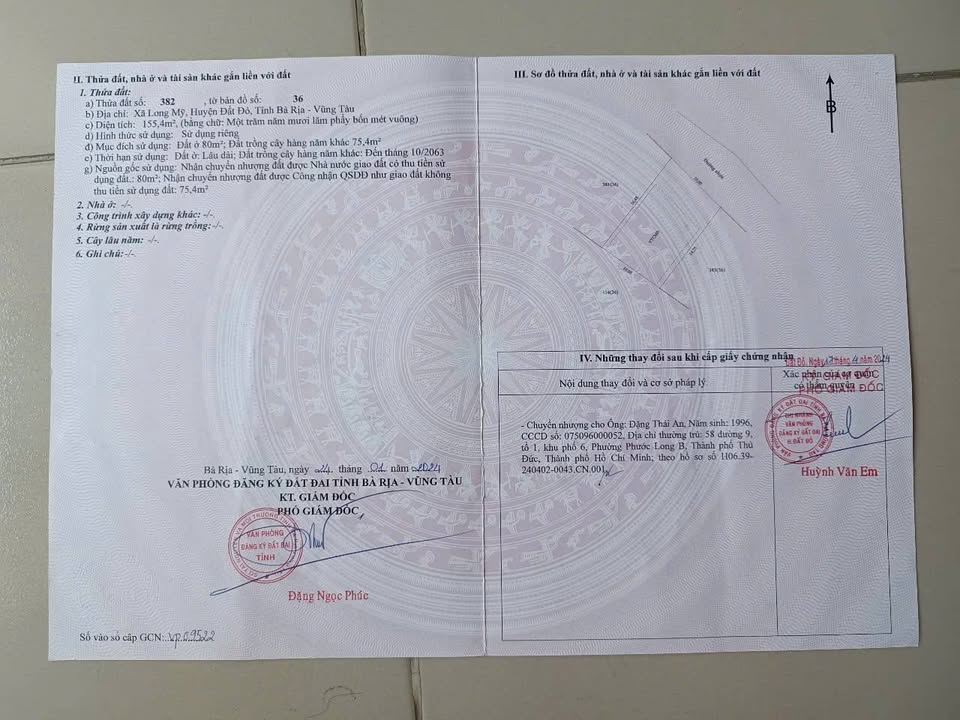 II. Thửa đất, nhà ở và tài sản khác gắn liền với đất
1. Thửa đất:
a) Thửa đất số: 382 , tờ bản đồ số: 36
b) Địa chỉ: Xã Long Mỹ, Huyện Đất Đỏ, Tỉnh Bà Rịa - Vũng Tàu
c) Diện tích: 155,4m², (bằng chữ: Một trăm năm mươi lăm phẩy bốn mét vuông)
d) Hình thức sử dụng: Sử dụng riêng
đ) Mục đích sử dụng: Đất ở 80m²; Đất trồng cây hàng năm khác 75,4m²
e) Thời hạn sử dụng: Đất ở: Lâu dài; Đất trồng cây hàng năm khác: Đến tháng 10/2063
g) Nguồn gốc sử dụng: Nhận chuyển nhượng đất được Nhà nước giao đất có thu tiền sử
dụng đất.: 80m²; Nhận chuyển nhượng đất được Công nhận QSDĐ như giao đất không
thu tiền sử dụng đất: 75,4m²
2. Nhà ở: -/-.
3. Công trình xây dựng khác: -/-.
4. Rừng sản xuất là rừng trồng: -/-.
5. Cây lâu năm: -/-.
6. Ghi chú: -/-.
Bà Rịa - Vũng Tàu, ngày 24 tháng 01 năm 2024
VĂN PHÒNG ĐĂNG KÝ ĐẤT ĐAI TỈNH BÀ RỊA - VŨNG TÀU
KT. GIÁM ĐỐC
PHÓ GIÁM ĐỐC
VĂN PHÒNG
ĐĂNG KÝ ĐẤT ĐAI
TỈNH
Đặng Ngọc Phúc
Số vào sổ cấp GCN: VP.09522
III. Sơ đồ thửa đất, nhà ở và tài sản khác gắn liền với đất
B
Đường nhựa
IV. Những thay đổi sau khi cấp giấy chứng nhận
Nội dung thay đổi và cơ sở pháp lý
Xác nhận của cơ quan
có thẩm quyền
Đất Đỏ, Ngày 17 tháng 4 năm 2024
KT. GIÁM ĐỐC
PHÓ GIÁM ĐỐC
- Chuyển nhượng cho Ông: Đặng Thái An, Năm sinh: 1996,
CCCD số: 075096000052, Địa chỉ thường trú: 58 đường 9,
tổ 1, khu phố 6, Phường Phước Long B, Thành phố Thủ
Đức, Thành phố Hồ Chí Minh; theo hồ sơ số H06.39-
240402-0043.CN.001
CHI NHÁNH
VĂN PHÒNG
ĐĂNG KÝ ĐẤT ĐAI
H. ĐẤT ĐỎ
Huỳnh Văn Em